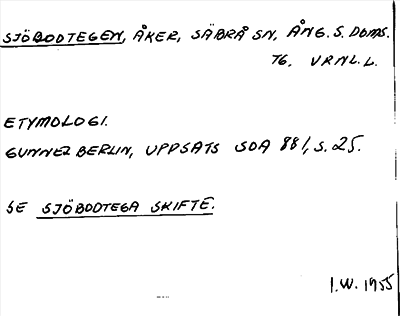 SJÖBODTEGEN, ÅKER, SÄBRÅ SN, ÅNG. S. DOMS.
76. VRNL. L.
ETYMOLOGI.
GUNNEL BERLIN, UPPSATS SOA 881, S. 25.
SE SJÖBODTEGA SKIFTE.
I.W. 1955